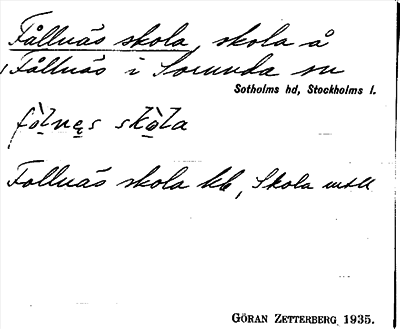 Fållnäs skola, skola å
Fållnäs i Sorunda sn
Sotholms hd, Stockholms l.
fòlnęs skòla
Follnäs skola kb, Skola mtll
GÖRAN ZETTERBERG 1935.